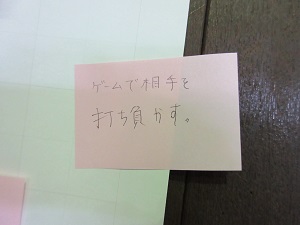 ゲームで相手を
打ち負かす。